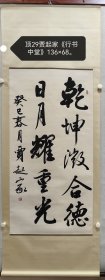 顶29贾起家《行书
中堂》136×68。
乾坤徵合德
日月耀重光
癸巳春月贾起家